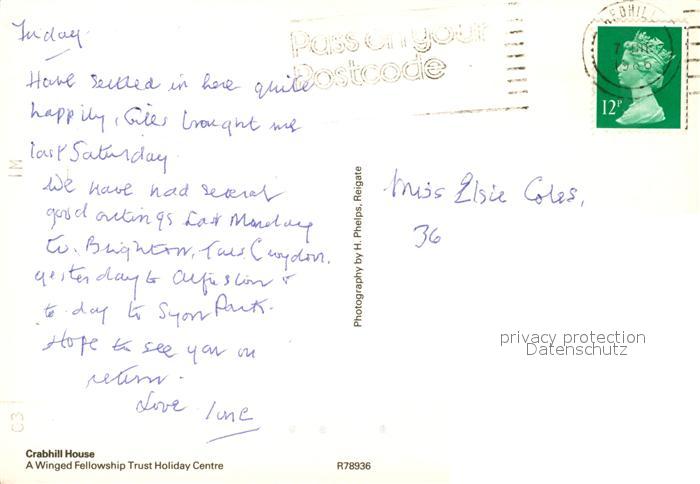 Friday.
Have settled in here quite
happily, Giles brought me
last Saturday.
We have had several
good outings Last Monday
to Brighton, Tues Croydon,
yesterday to Alfriston &
to-day to Syon Park.
Hope to see you on
return.
Love June
Crabhill House
A Winged Fellowship Trust Holiday Centre
R78936
Photography by H. Phelps, Reigate
Pass on your
Postcode
REDHILL
12P
Miss Elsie Coles,
36
privacy protection
Datenschutz